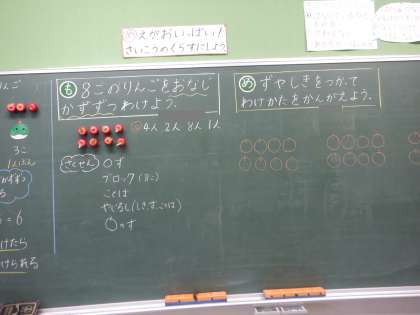 めえがおいっぱい!
さいこうのくらすにしよう
も 8このりんごをおなじ
かずずつわけよう。
め ずやしきをつかって
わけかたをかんがえよう。
4人 2人 8人 1人
さくせん ○ず
ブロック(8こ)
ことば
やじるし(しき,ず,ことば)
のず
りんご
3こ
1人ぶん
= 6
けたら
けられる